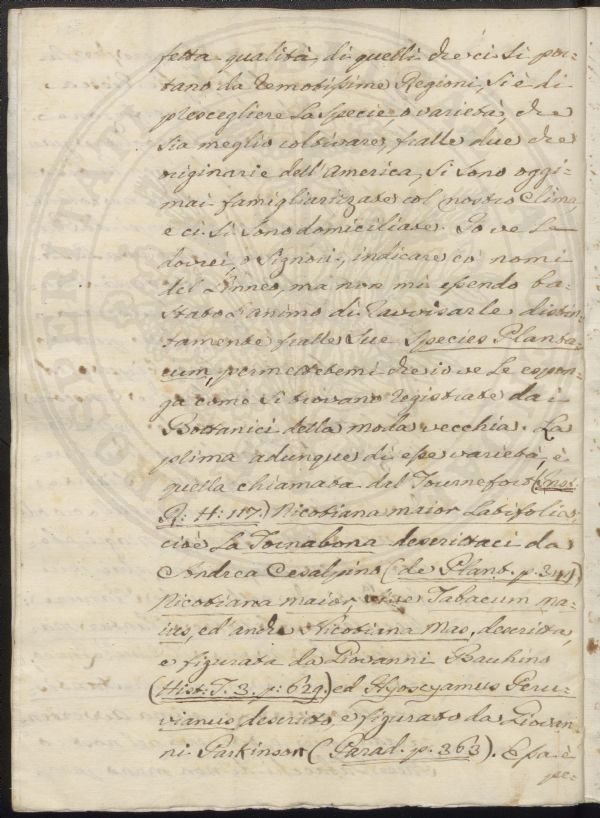 fetta qualità, di quelli che ci si por=
tano da remotissime Regioni, si è di
prescegliere la specie o varietà, che
sia meglio coltivare, fralle due che
originarie dell'America, si sono oggi=
mai famigliarizzate col nostro Clima,
e ci si sono domiciliate. Io ve le
dovrei, o Signori, indicare co' nomi
del Linneo, ma non mi essendo ba=
stato l'animo di ravvisarle distin=
tamente fralle sue Species Planta=
rum, permettetemi che io ve le espon=
ga come si trovano registrate dai
Bottanici della moda vecchia. La
prima adunque di esse varietà, è
quella chiamata dal Tournefort (Inst.
R: H: 117.) Nicotiana maior Latifolia,
cioè La Tornabona descrittaci da
Andrea Cesalpino (de Plant. p. 344)
Nicotiana maior, sive Tabacum ma=
ius, ed anche Nicotiana Mas, descritta,
e figurata da Giovanni Bauhino
(Hist: T. 3. p: 629.) ed Hyoscyamus Peru=
vianus descritto, e figurato da Giovan=
ni Parkinson (Parad. p. 363). Essa è
pe=